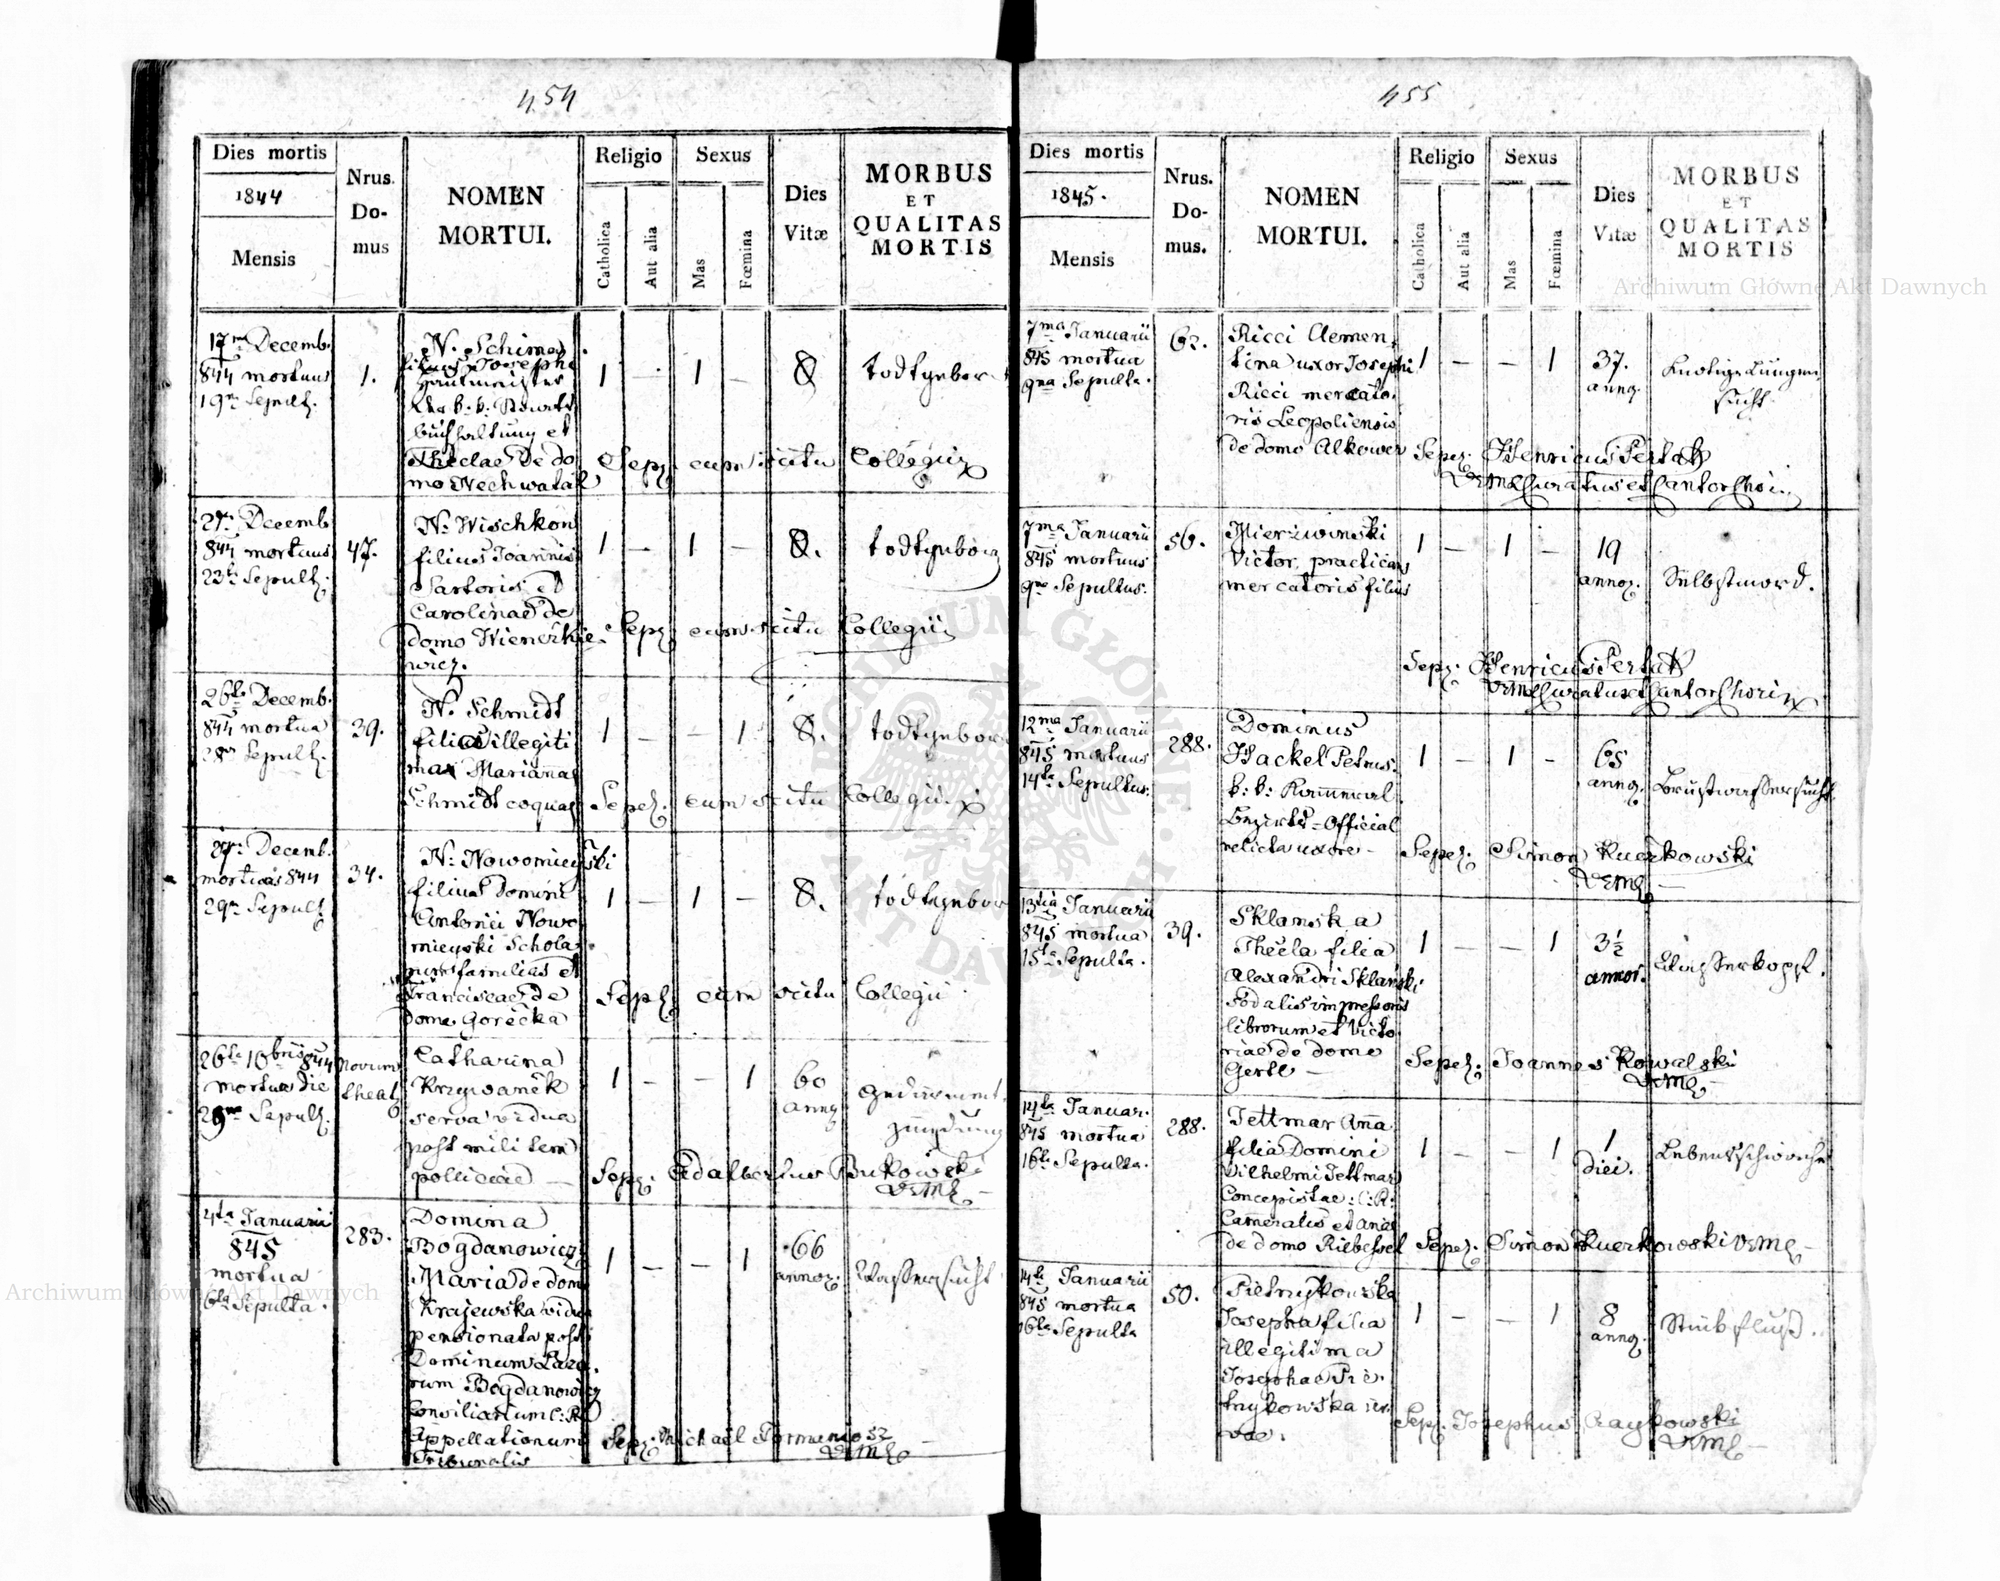 454
Dies mortis
1844
Mensis
Nrus.
Do-
mus
NOMEN
MORTUI.
Religio
Catholica
Aut alia
Sexus
Mas
Fœmina
Dies
Vitæ
MORBUS
ET
QUALITAS
MORTIS
Decemb.
844 mortuus
1.
N. Schimer
filius Josephi
buchhaltung et
Theclae de do
mo Nechwatal
1 — 1 —
0
todtgebor
Sepel. cum scitu Collegii
Decemb
844 mortuus
47.
N. Wischkon
filius Joannis
Sartoris et
Carolinae de
domo
wicz.
1 — 1 —
0.
todtgeborn
Sepel. cum scitu Collegii
26ta Decemb.
844 mortua
39.
N. Schmidt
filia illegiti
mae Mariannae
Schmidt coquae
1 — — 1
0.
todtgebor
Sepel. cum scitu Collegii
Decemb.
mortuus 844
29na Sepult.
34.
N. Nowomieyski
filius Domini
Antonii Nowo
mieyski Schola
familias et
Franciscae de
domo Gorecka
1 — 1 —
0.
todtgebor
Sepel. cum scitu Collegii
26ta 10bris 844
mortua die
Sepult.
Novum
theat.
Catharina
Krzywanek
serva vidua
post militem
policiae —
1 — — 1
60
annor.
Sepel. Adalbertus Bukowski
4ta Januarii
845
mortua
6ta Sepulta.
283.
Domina
Bogdanowicz
Maria de domo
Krajewska vidua
pensionata post
Dominum Laza-
rum Bogdanowicz
Consiliarium C: R:
Appellationum
Tribunalis
1 — — 1
66
annor.
Wassersucht
Sepel. Michael
455
Dies mortis
1845.
Mensis
Nrus.
Do-
mus.
NOMEN
MORTUI.
Religio
Catholica
Aut alia
Sexus
Mas
Fœmina
Dies
Vitæ
MORBUS
ET
QUALITAS
MORTIS
7ma Januarii
845 mortua
9na Sepulta.
62.
Ricci Clemen-
tina uxor Josephi
Ricci mercato-
ris Leopoliensis
de domo Alkower
1 — — 1
37.
annor.
Knotige Lungen
sucht
Sepel. Henricus Pertak
Curatus et Cantor Chori
7ma Januarii
845 mortuus
9na Sepultus.
56.
Mierzwinski
Victor, practicans
mercatoris filius
1 — 1 —
19
annor.
Selbstmord.
Sepel. Henricus Pertak
Curatus et Cantor Chori
12ma Januarii
845 mortuus
14ta Sepultus.
288.
Dominus
Hackel Petrus
k: k: Kammeral
Bezirks-Official
relicta uxore —
1 — 1 —
65
annor.
Brustwassersucht.
Sepel. Simon Kuczkowski
13tia Januarii
845 mortua
15ta Sepulta.
39.
Sklanska
Thecla filia
Alexandri Sklanski
Sodalis impressoris
librorum et Victo
riae de domo
Gertl —
1 — — 1
3½
annor.
Wasserkopf.
Sepel. Joannes Kowalski
14ta Januar.
845 mortua
16ta Sepulta.
288.
Tettmar Anna
filia Domini
Vilhelmi Tettmar
Concepistae C: R:
Cameralis et Annae
de domo Riebessel
1 — — 1
1
diei.
Lebensschwäche
Sepel. Simon Kuczkowski
14ta Januarii
845 mortua
16ta Sepulta
50.
Pietrzykowska
Josepha filia
illegitima
Josephae Pie-
trzykowska ser
vae.
1 — — 1
8
annor.
Stickfluß.
Sepel. Josephus Czaykowski
Archiwum Główne Akt Dawnych
Archiwum Główne Akt Dawnych
ARCHIWUM GŁÓWNE AKT DAWNYCH